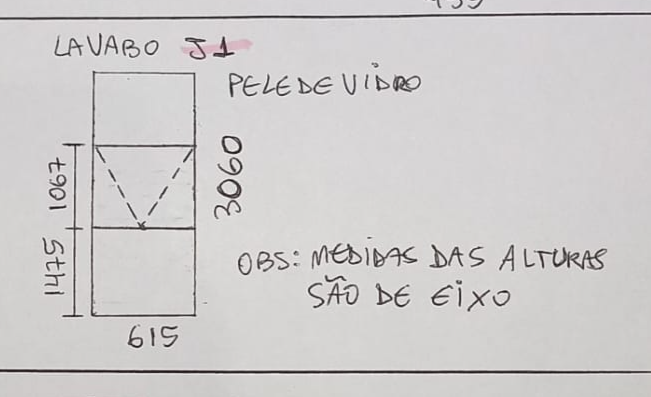 LAVABO J1
PELE DE VIDRO
1067
3060
1475
OBS: MEDIDAS DAS ALTURAS
SÃO DE EIXO
615